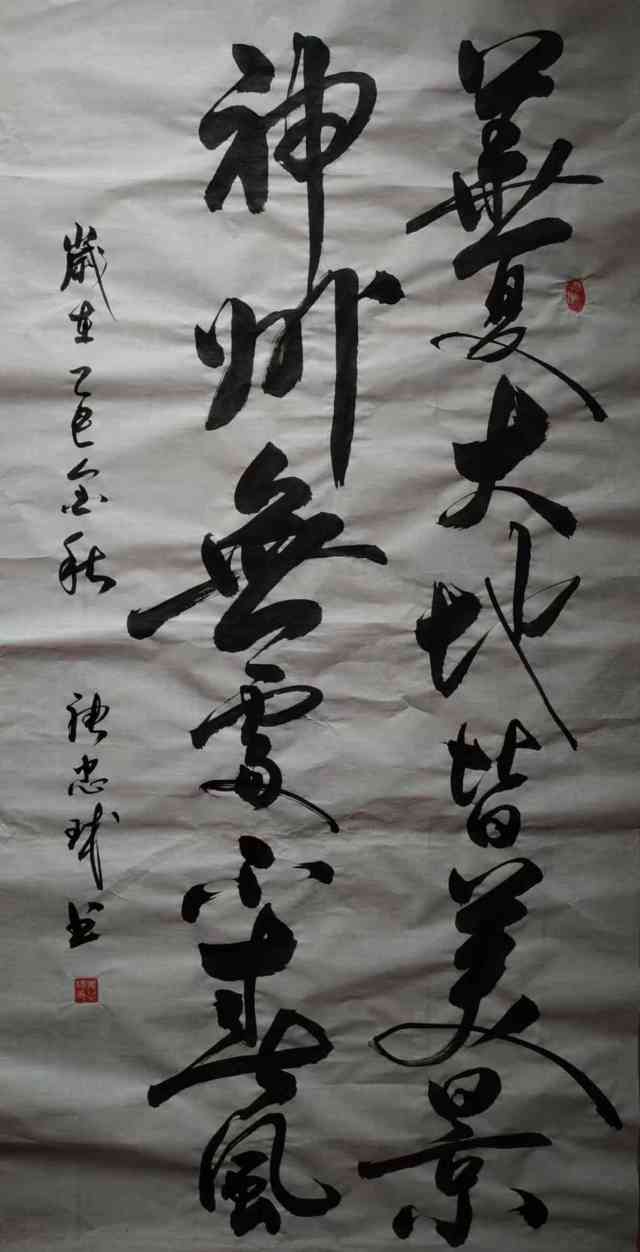 華夏大地皆美景
神州無處不春風
歲在乙巳金秋 忠球书